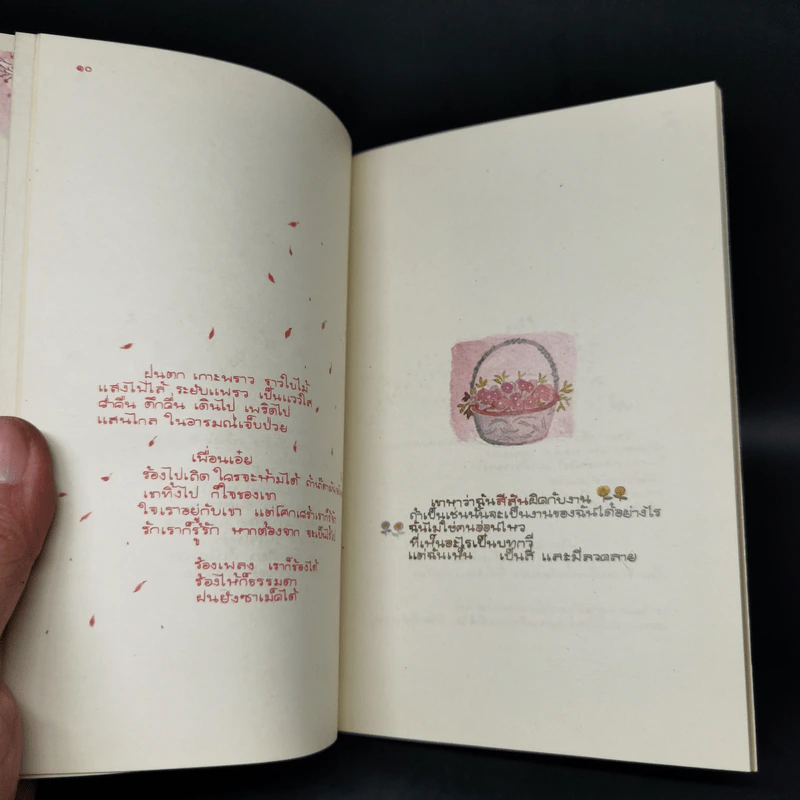 ๑๐
ฝนตก เกาะพราว ราวใบไม้
แสงไฟไล้ ระยับแพรว เป็นแววใส
ตื่น เดินไป เพริดไป
แสนไกล ในอารมณ์เจ็บป่วย
เพื่อนเอ๋ย
ร้องไปเถิด ใครจะห้ามได้
เขาทิ้งไป ก็ใจของเขา
ใจเราอยู่กับเขา แต่โศกเศร้าเราก็รู้
รักเราก็รู้รัก หากต้องจาก จะเป็นไร
ร้องเพลง เราก็ร้องได้
ร้องไห้ก็ธรรมดา
ฝนยังซาเม็ดได้
เขาหาว่าฉันสีสันผิดกับงาน
ถ้าเป็นเช่นนั้นจะเป็นงานของฉันได้อย่างไร
ฉันไม่ใช่คนอ่อนไหว
ที่เห็นอะไรเป็นบทกวี
แต่ฉันเห็น เป็นสี และมีลวดลาย